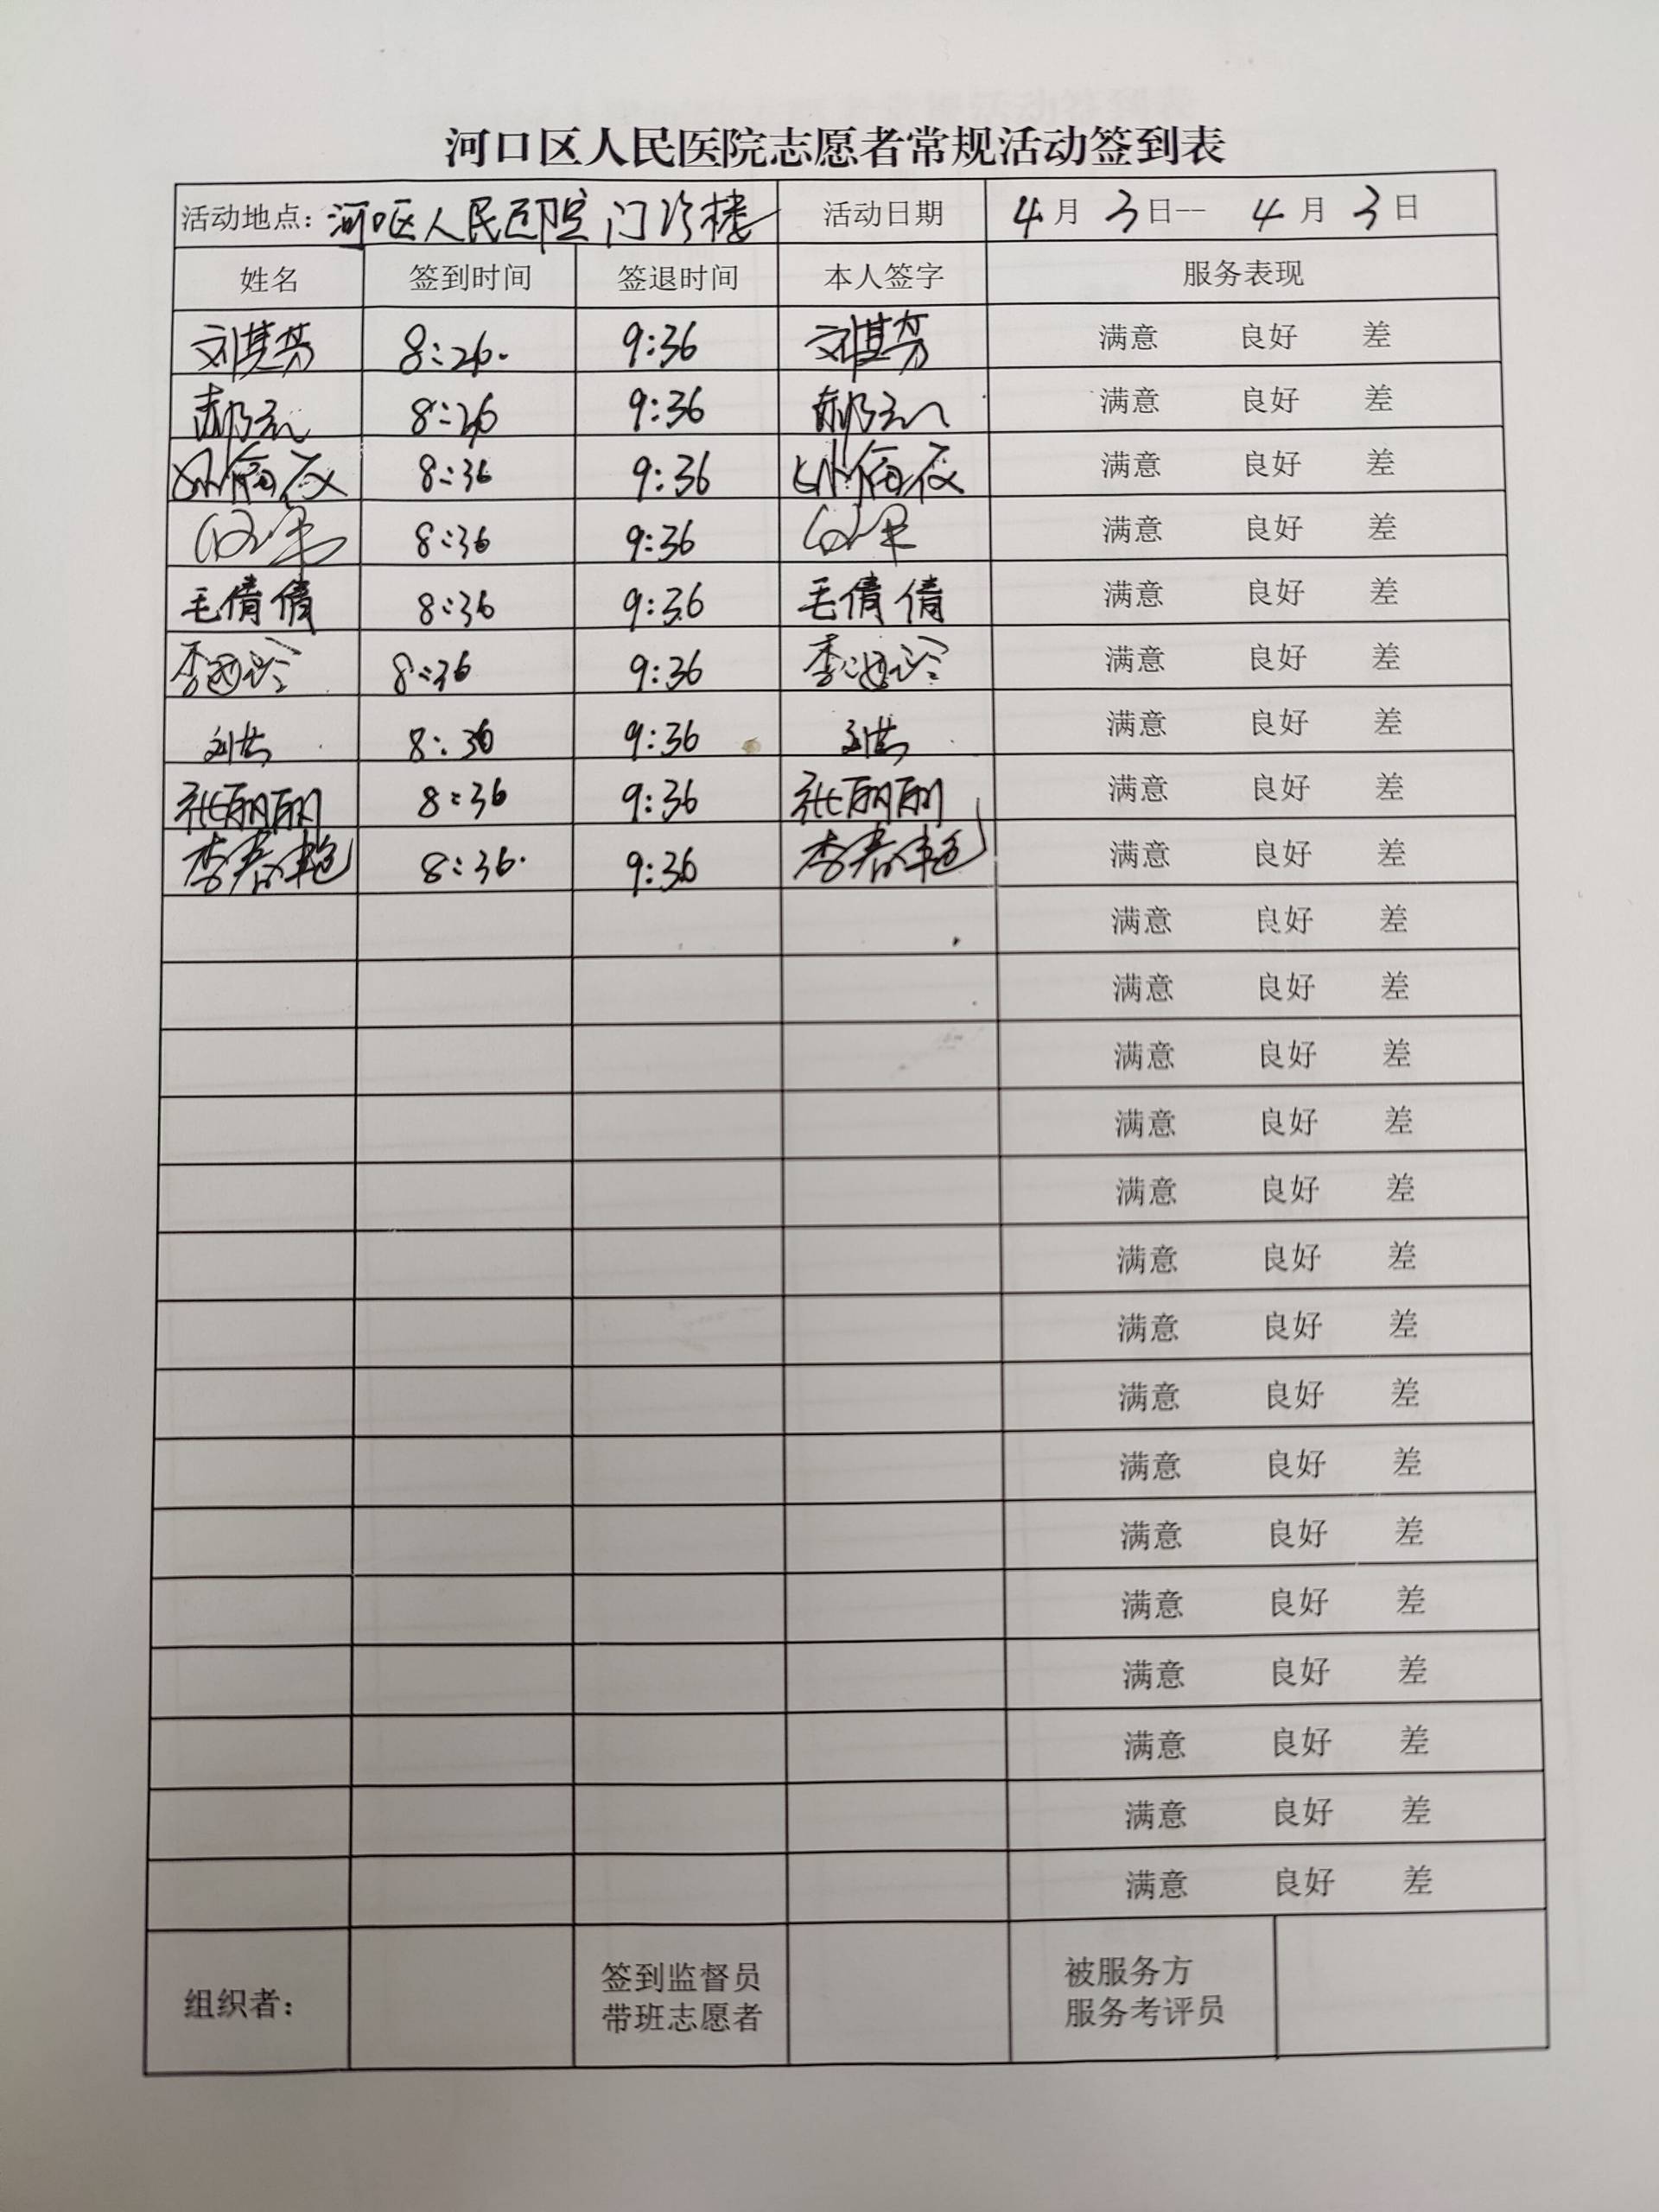 河口区人民医院志愿者常规活动签到表
活动地点: 河口区人民医院门诊楼 活动日期 4月3日-- 4月3日
姓名 签到时间 签退时间 本人签字 服务表现
刘其芬 8:26. 9:36 刘其芬 满意 良好 差
8:26 9:36 满意 良好 差
8:36 9:36 满意 良好 差
8:36 9:36 满意 良好 差
毛倩倩 8:36 9:36 毛倩倩 满意 良好 差
8:36 9:36 满意 良好 差
8:36 9:36 满意 良好 差
张丽丽 8:36 9:36 张丽丽 满意 良好 差
李春艳 8:36. 9:36 李春艳 满意 良好 差
满意 良好 差
满意 良好 差
满意 良好 差
满意 良好 差
满意 良好 差
满意 良好 差
满意 良好 差
满意 良好 差
满意 良好 差
满意 良好 差
满意 良好 差
满意 良好 差
满意 良好 差
满意 良好 差
满意 良好 差
组织者: 签到监督员 被服务方
带班志愿者 服务考评员